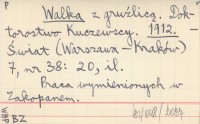 PZ
Walka z gruźlicą. Dok-
torostwo Kuczewscy. 1912. -
Świat (Warszawa-Kraków)
7, nr 38: 20, il.
Praca wymienionych w
Zakopanem.
BZ